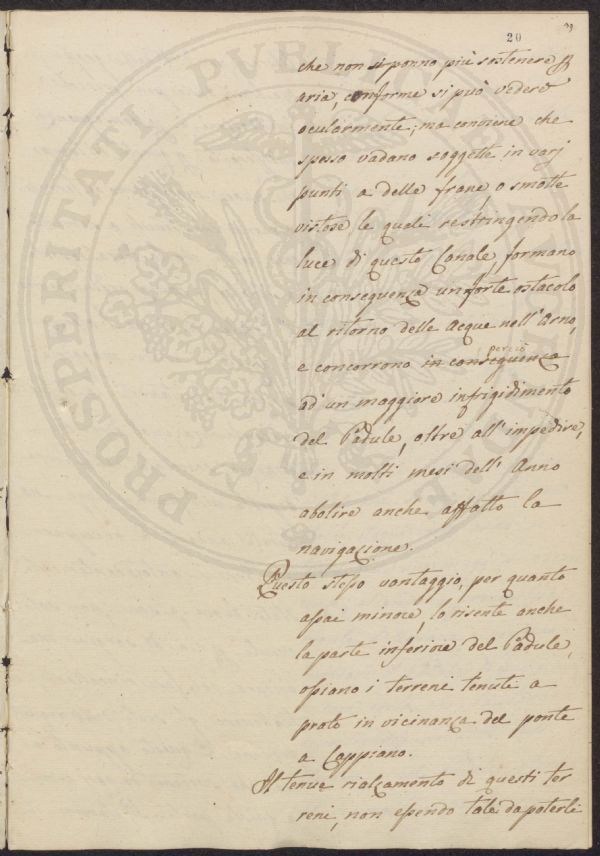 20
che non si ponno più sostenere
aria, conforme si può vedere
ocularmente; ma conviene che
spesso vadano soggette in varj
punti a delle frane, o smotte
vistose le quali restringendo la
luce di questo Canale formano
in conseguenza un forte ostacolo
al ritorno delle Acque nell'Arno,
perciò
e concorrono in conseguenza
ad un maggiore infrigidimento
del Padule, oltre all'impedire,
e in molti mesi dell'Anno
abolire anche affatto la
navigazione.
Questo stesso vantaggio, per quanto
assai minore, lo risente anche
la parte inferiore del Padule,
ossiano i terreni tenuti a
prato in vicinanza del ponte
a Cappiano.
Il tenue rialzamento di questi ter
reni, non essendo tale da poterli
PROSPERITATI PUBLIC